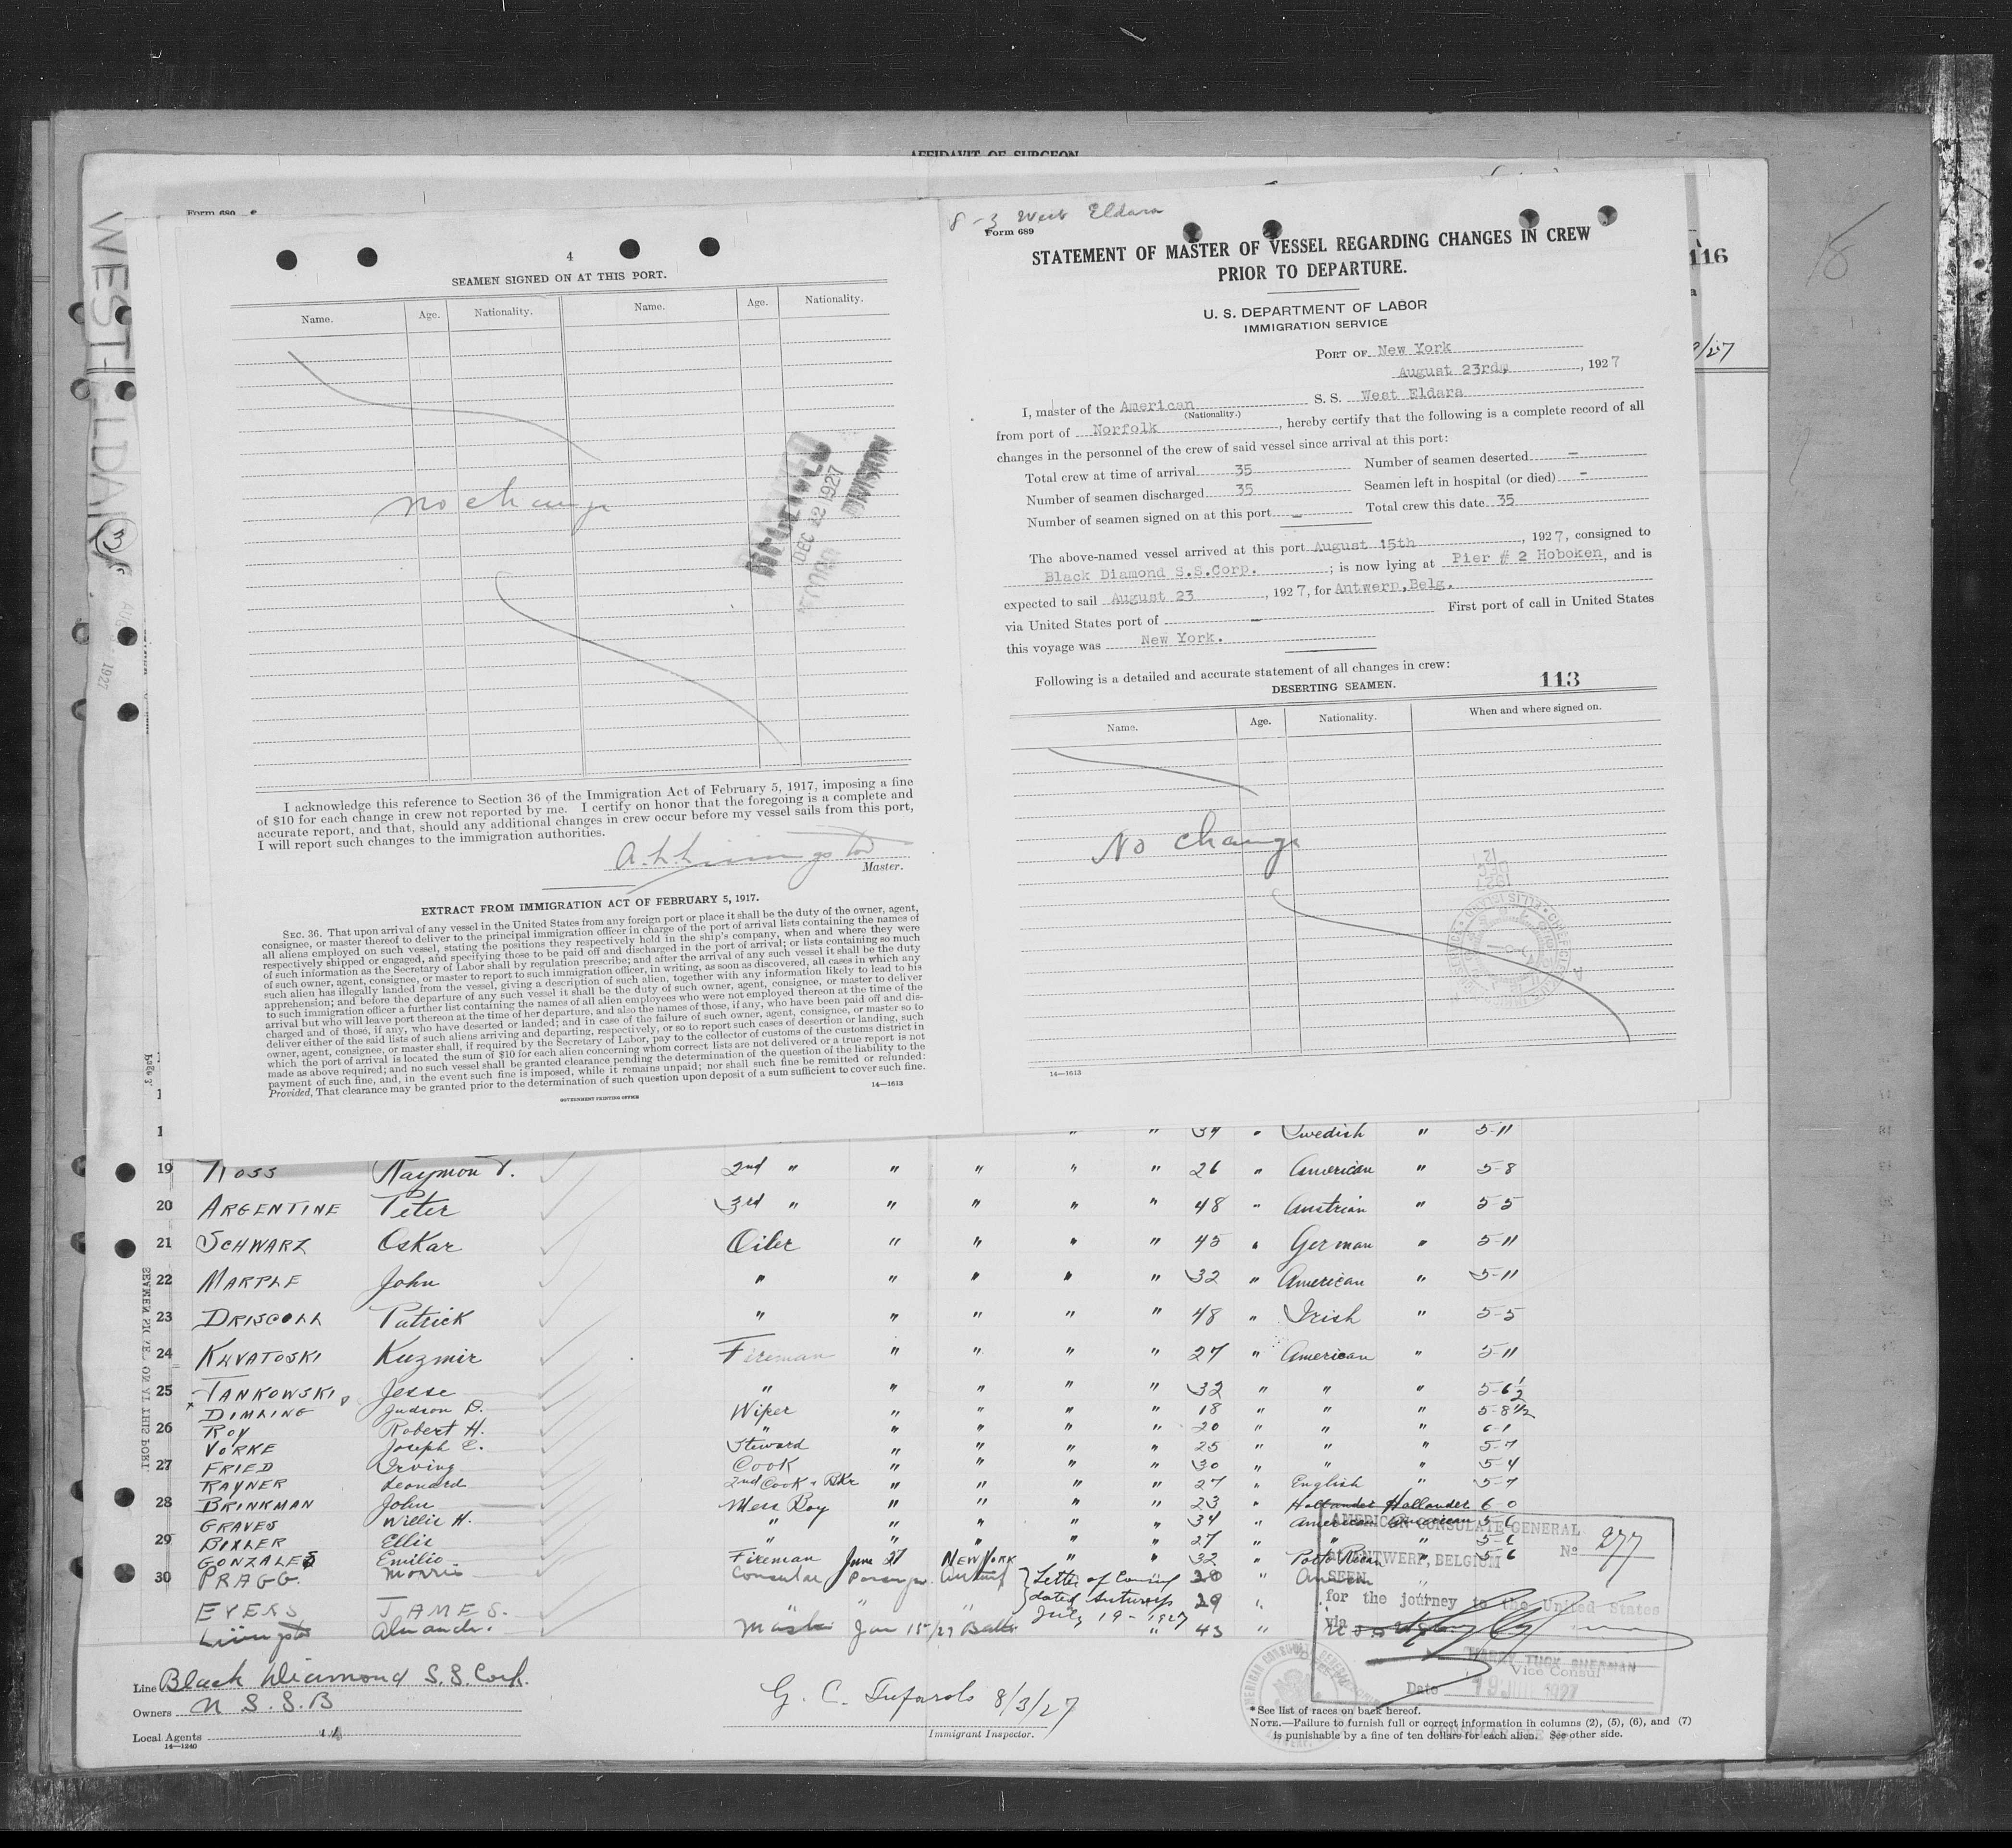 AFFIDAVIT OF SURGEON
Form 689
WEST ELDARA
4
SEAMEN SIGNED ON AT THIS PORT.
Name. Age. Nationality. Name. Age. Nationality.
no change
DEC 22 1927
DIVISION
I acknowledge this reference to Section 36 of the Immigration Act of February 5, 1917, imposing a fine
of $10 for each change in crew not reported by me. I certify on honor that the foregoing is a complete and
accurate report, and that, should any additional changes in crew occur before my vessel sails from this port,
I will report such changes to the immigration authorities.
Master.
EXTRACT FROM IMMIGRATION ACT OF FEBRUARY 5, 1917.
SEC. 36. That upon arrival of any vessel in the United States from any foreign port or place it shall be the duty of the owner, agent,
consignee, or master thereof to deliver to the principal immigration officer in charge of the port of arrival lists containing the names of
all aliens employed on such vessel, stating the positions they respectively hold in the ship's company, when and where they were
respectively shipped or engaged, and specifying those to be paid off and discharged in the port of arrival; or lists containing so much
of such information as the Secretary of Labor shall by regulation prescribe; and after the arrival of any such vessel it shall be the duty
of such owner, agent, consignee, or master to report to such immigration officer, in writing, as soon as discovered, all cases in which any
such alien has illegally landed from the vessel, giving a description of such alien, together with any information likely to lead to his
apprehension; and before the departure of any such vessel it shall be the duty of such owner, agent, consignee, or master to deliver
to such immigration officer a further list containing the names of all alien employees who were not employed thereon at the time of the
arrival but who will leave port thereon at the time of her departure, and also the names of those, if any, who have been paid off and dis-
charged and of those, if any, who have deserted or landed; and in case of the failure of such owner, agent, consignee, or master so to
deliver either of the said lists of such aliens arriving and departing, respectively, or so to report such cases of desertion or landing, such
owner, agent, consignee, or master shall, if required by the Secretary of Labor, pay to the collector of customs of the customs district in
which the port of arrival is located the sum of $10 for each alien concerning whom correct lists are not delivered or a true report is not
made as above required; and no such vessel shall be granted clearance pending the determination of the question of the liability to the
payment of such fine, and, in the event such fine is imposed, while it remains unpaid; nor shall such fine be remitted or refunded:
Provided, That clearance may be granted prior to the determination of such question upon deposit of a sum sufficient to cover such fine.
14—1613
GOVERNMENT PRINTING OFFICE
8-3 West Eldara
Form 689
STATEMENT OF MASTER OF VESSEL REGARDING CHANGES IN CREW
PRIOR TO DEPARTURE.
U. S. DEPARTMENT OF LABOR
IMMIGRATION SERVICE
PORT OF New York
August 23rd, , 1927
I, master of the American S. S. West Eldara
(Nationality.)
from port of Norfolk , hereby certify that the following is a complete record of all
changes in the personnel of the crew of said vessel since arrival at this port:
Total crew at time of arrival 35 Number of seamen deserted —
Number of seamen discharged 35 Seamen left in hospital (or died) -
Number of seamen signed on at this port — Total crew this date 35
The above-named vessel arrived at this port August 15th , 1927, consigned to
Black Diamond S.S.Corp. ; is now lying at Pier # 2 Hoboken, and is
expected to sail August 23 , 1927, for Antwerp,Belg.
via United States port of — First port of call in United States
this voyage was New York.
Following is a detailed and accurate statement of all changes in crew:
DESERTING SEAMEN. 113
Name. Age. Nationality. When and where signed on.
No change
14—1613
116
18
" " 37 " Swedish " 5-11
19 Ross Raymon T. 2nd " " " " " 26 " American " 5-8
20 ARGENTINE Peter 3rd " " " " " 48 " Austrian " 5-5
21 SCHWARZ Oskar Oiler " " " " 45 " German " 5-11
22 MARPLE John " " " " " 32 " American " 5-11
23 DRISCOLL Patrick " " " " " 48 " Irish " 5-5
24 KWVATOSKI Kuzmir Fireman " " " " 27 " American " 5-11
25 TANKOWSKI Jesse " " " " " 32 " " " 5-6½
DIMLING Judson D. Wiper " " " " 18 " " " 5-8½
26 ROY Robert H. " " " " " 20 " " " 6-1
YORKE Joseph E. Steward " " " " 25 " " " 5-7
27 FRIED Irving Cook " " " " 30 " " " 5-4
RAYNER Leonard 2nd Cook & Bkr " " " " 27 " English " 5-7
28 BRINKMAN John Mess Boy " " " " 23 " Hollander Hollander 6-0
GRAVES Willie H. " " " " " 34 " American American 5-6
29 BIXLER Ellis " " " " " 27 " " " 5-6
GONZALES Emilio Fireman June 27 New York " " 32 " Porto Rican " 5-6
30 PRAGG. Morris Consular Passenger Antwerp Letter of Consul 28 " American "
EVERS JAMES. " " " dated Antwerp 29 "
July 19-1927
Livingston Alexander. Master Jan 15/27 Balto " 43 "
AMERICAN CONSULATE GENERAL
ANTWERP, BELGIUM No 277
SEEN
for the journey to the United States
via
HARRY TUCK SHERMAN
Vice Consul
Date 19 JUL 1927
Line Black Diamond S.S. Corp.
Owners U S S B
Local Agents "
14—1240
8/3/27
Immigrant Inspector.
* See list of races on back hereof.
NOTE.—Failure to furnish full or correct information in columns (2), (5), (6), and (7)
is punishable by a fine of ten dollars for each alien. See other side.